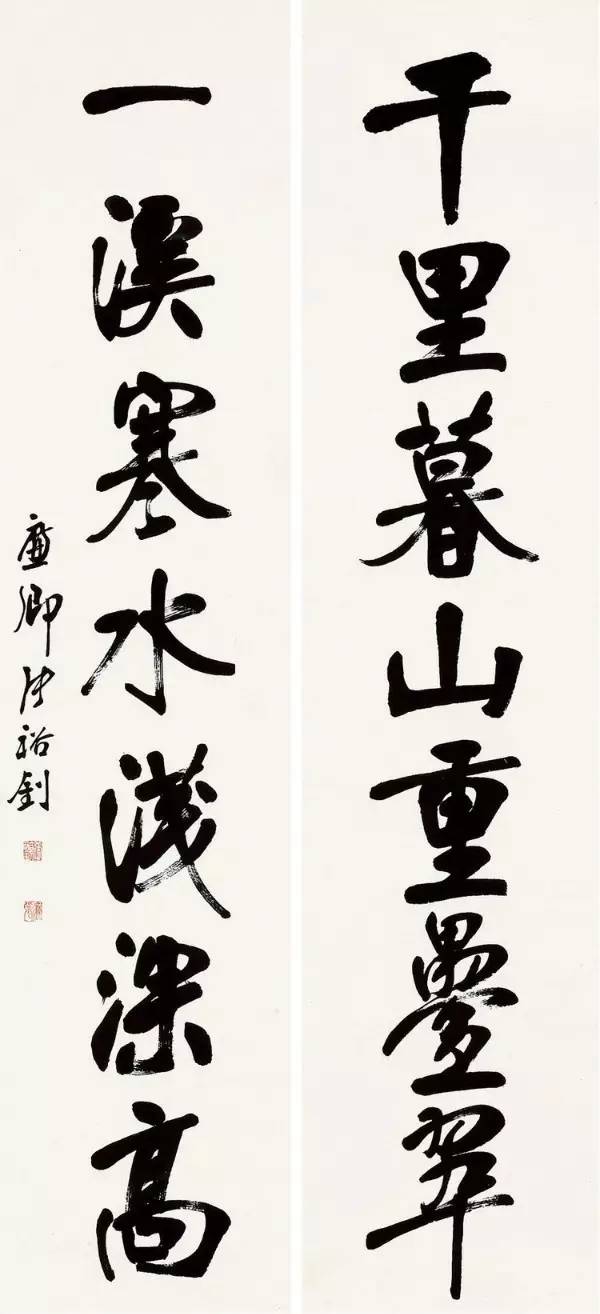 千里暮山重疊翠
一溪寒水淺深高
廉卿張裕釗